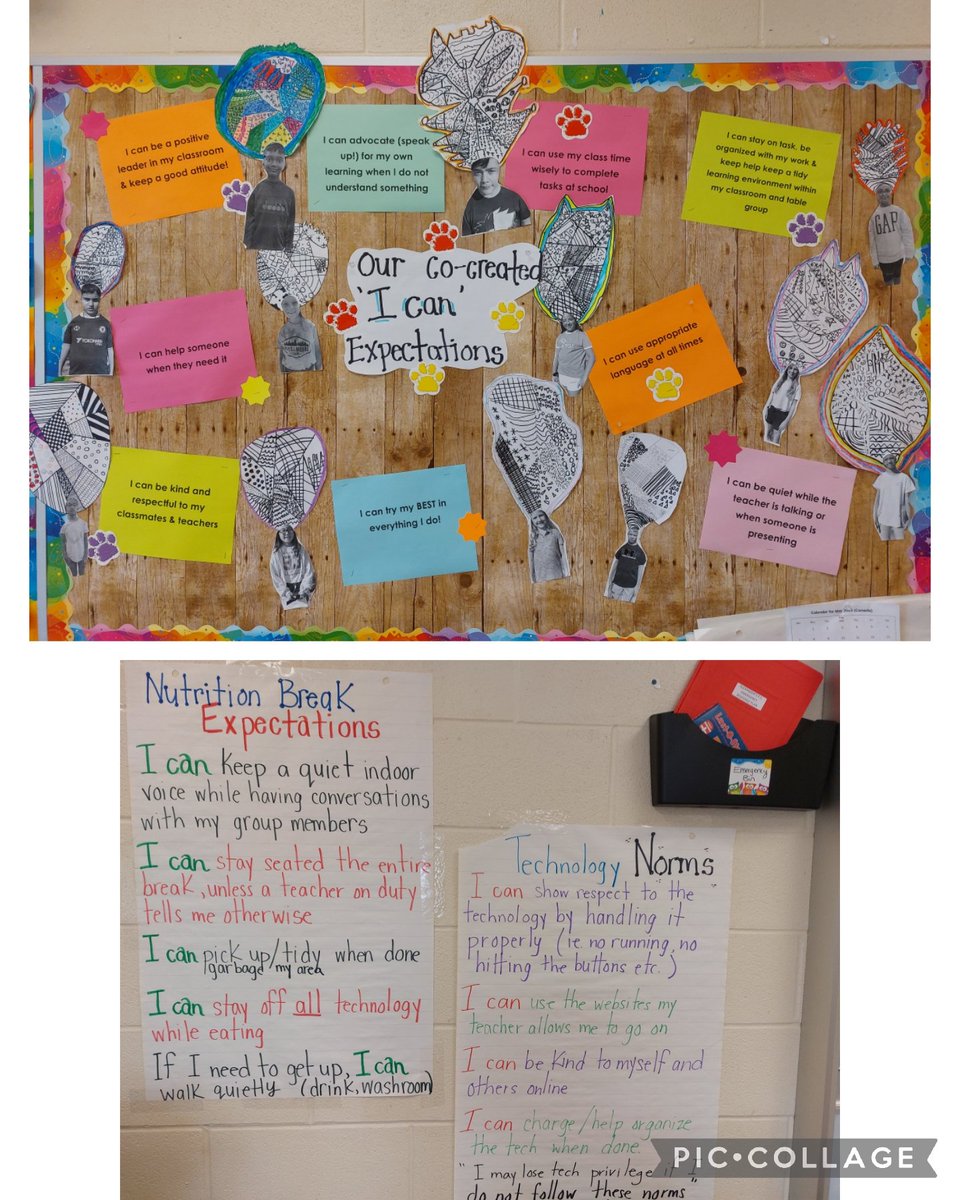 I can be a positive
leader in my classroom
& keep a good attitude!
I can advocate (speak
up!) for my own
learning when I do not
understand something
I can use my class time
wisely to complete
tasks at school
I can stay on task, be
organized with my work &
keep help keep a tidy
learning environment within
my classroom and table
group
GAP
Our co-created
'I can'
Expectations
I can help someone
when they need it
I can use appropriate
language at all times
I can be kind and
respectful to my
classmates & teachers
I can try my BEST in
everything I do!
I can be quiet while the
teacher is talking or
when someone is
presenting
Nutrition Break
Expectations
I can keep a quiet indoor
voice while having conversations
with my group members
I can stay seated the entire
break, unless a teacher on duty
tells me otherwise
I can pick up/tidy when done
garbage my area
I can stay off all technology
while eating
If I need to get up, I can
walk quietly (drink, washroom)
Emergency
Bin
Technology "Norms"
I can show respect to the
technology by handling it
properly (ie. no running, no
hitting the buttons etc.)
I can use the websites my
teacher allows me to go on
I can be kind to myself and
others online
I can charge/help organize
the tech when done.
"I may lose tech privilege if I
do not follow these norms
PIC•COLLAGE